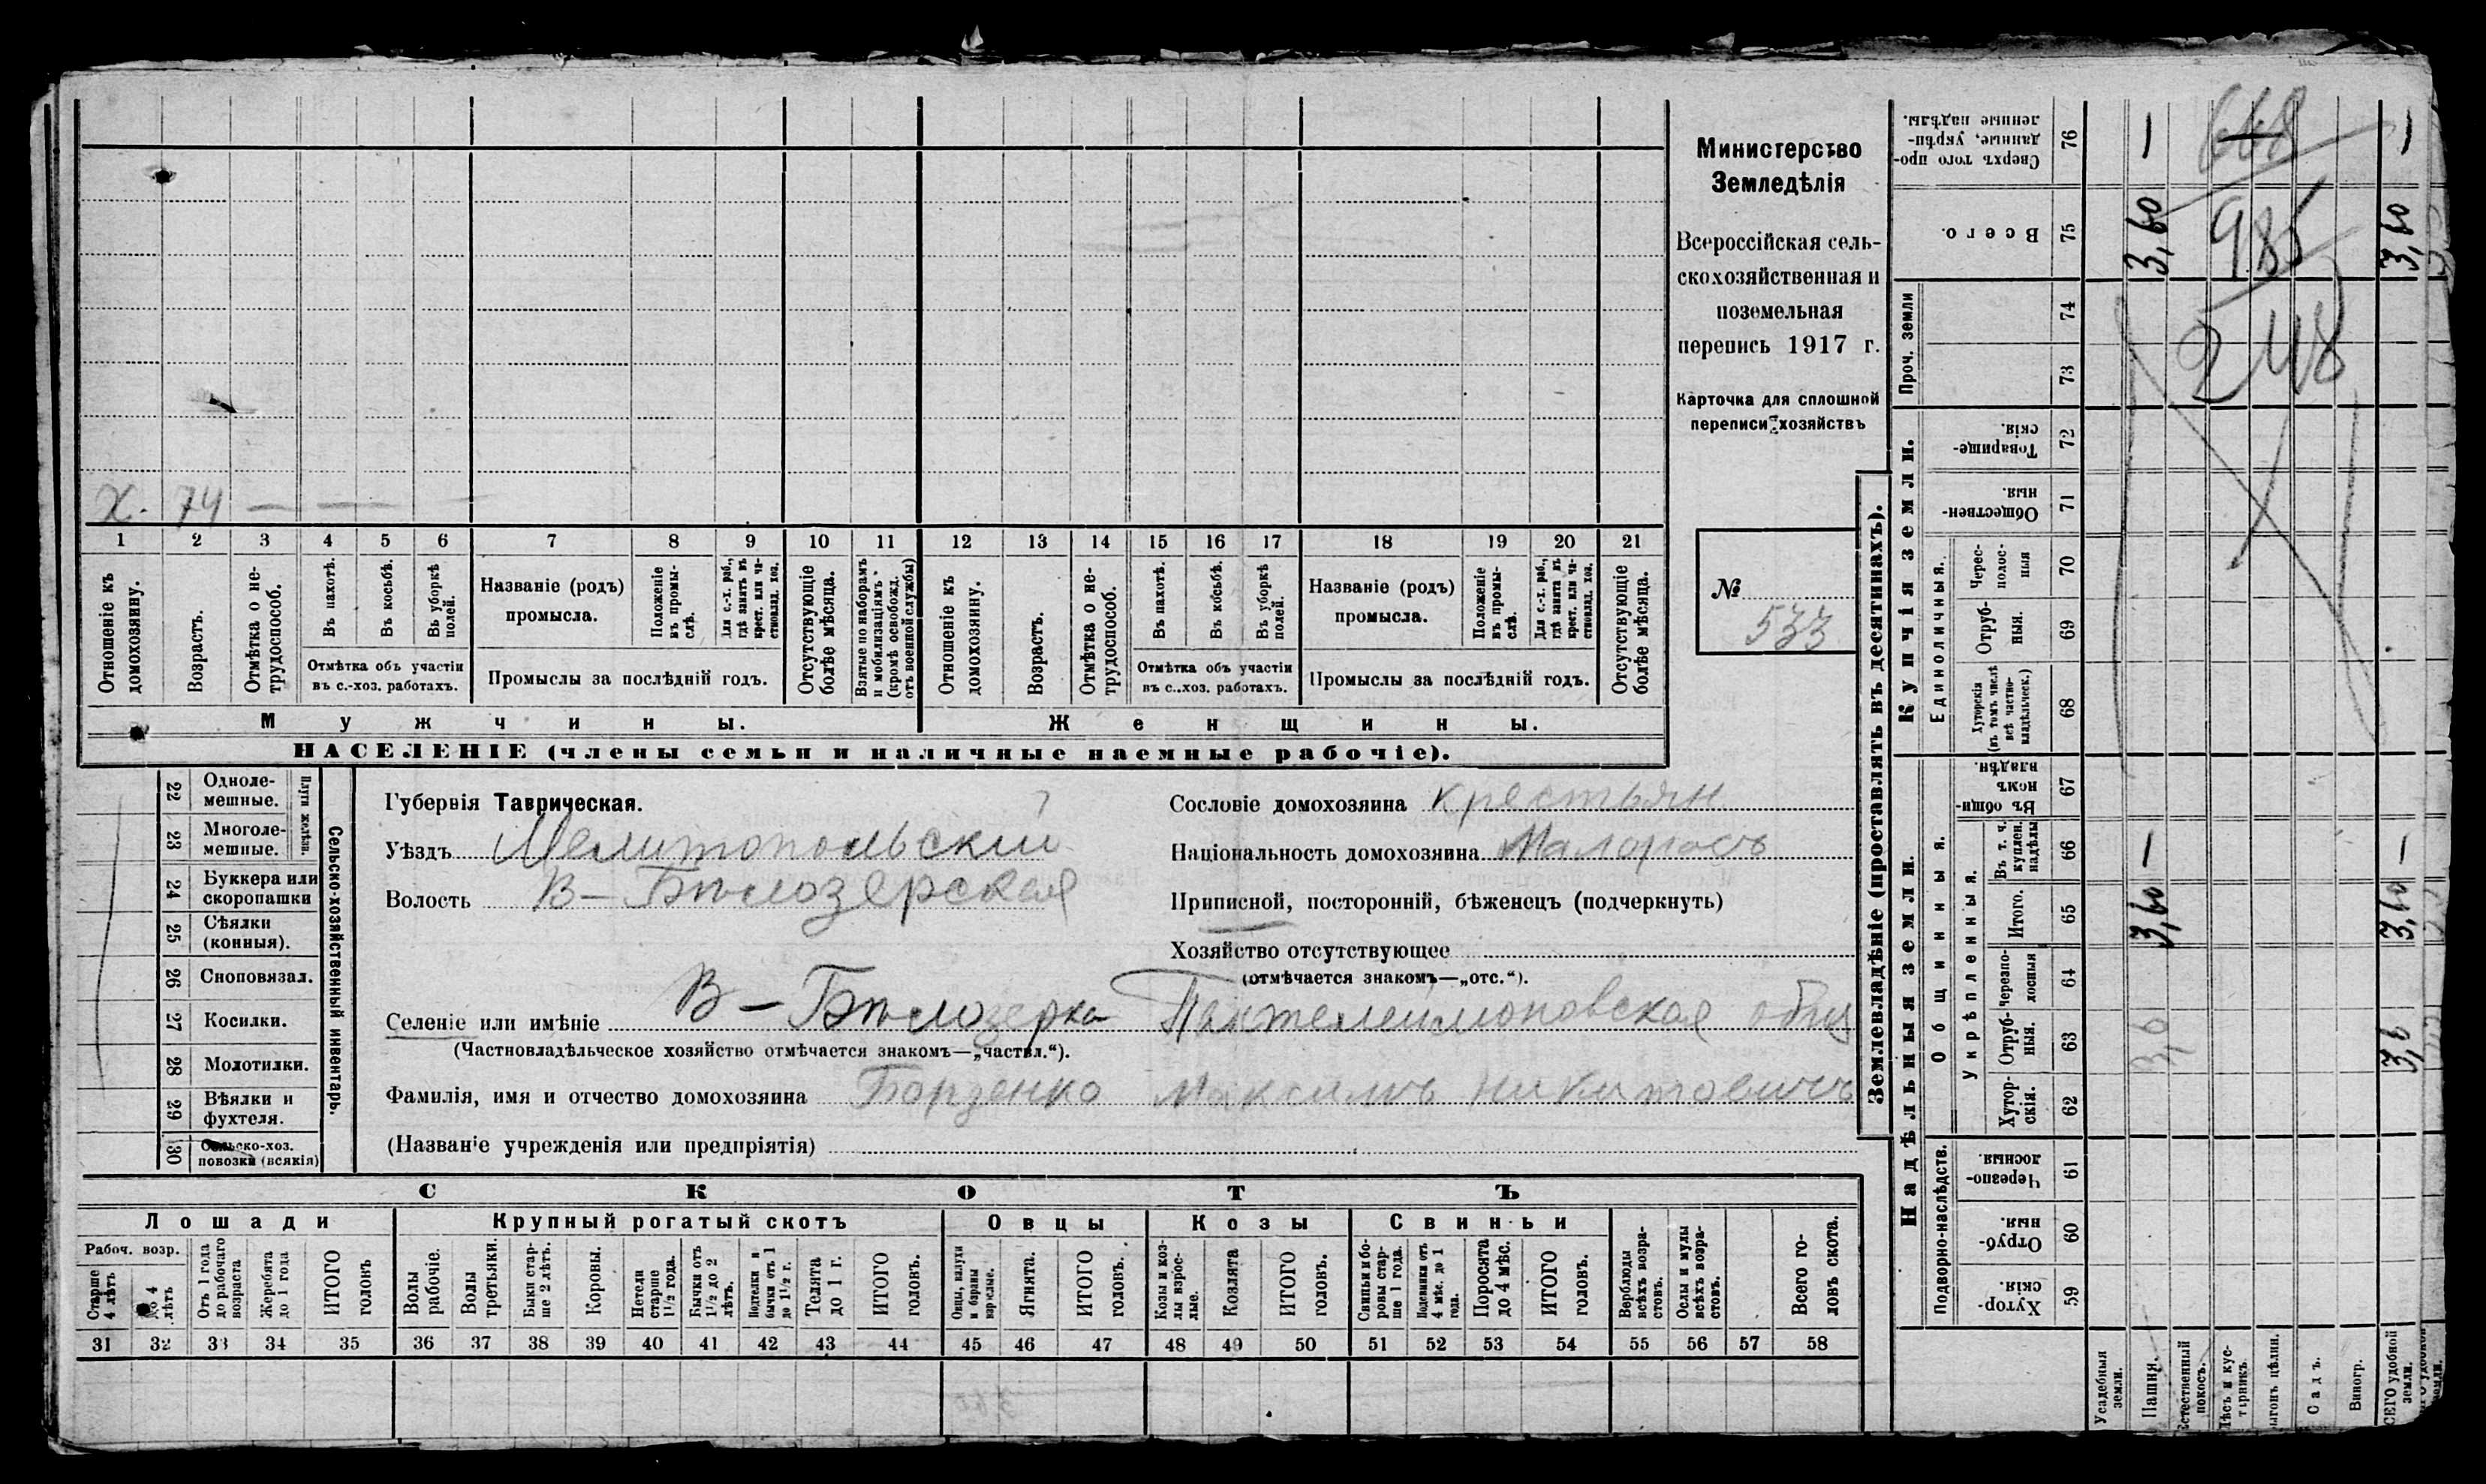 Министерство
Земледѣлія
Всероссійская сель-
скохозяйственная и
поземельная
перепись 1917 г.
Карточка для сплошной
переписи хозяйствъ
№
533
Х. 74 — —
1 2 3 4 5 6 7 8 9 10 11 12 13 14 15 16 17 18 19 20 21
Отношеніе къ домохозяину.
Возрастъ.
Отмѣтка о не-трудоспособ.
Въ пахотѣ.
Въ косьбѣ.
Въ уборкѣ полей.
Отмѣтка объ участіи
въ с.-хоз. работахъ.
Названіе (родъ)
промысла.
Положеніе въ промы-слѣ.
Для с.-х. раб., гдѣ занятъ въ крест. или ча-стновлад. хоз.
Промыслы за послѣдній годъ.
Отсутствующіе болѣе мѣсяца.
Взятые по наборамъ и мобилизаціямъ (кромѣ освобожд. отъ военной службы)
Отношеніе къ домохозяину.
Возрастъ.
Отмѣтка о не-трудоспособ.
Въ пахотѣ.
Въ косьбѣ.
Въ уборкѣ полей.
Отмѣтка объ участіи
въ с.-хоз. работахъ.
Названіе (родъ)
промысла.
Положеніе въ промы-слѣ.
Для с.-х. раб., гдѣ занятъ въ крест. или ча-стновлад. хоз.
Промыслы за послѣдній годъ.
Отсутствующіе болѣе мѣсяца.
Мужчины. Женщины.
НАСЕЛЕНІЕ (члены семьи и наличные наемные рабочіе).
Сельско-хозяйственный инвентарь.
Плуги желѣзн.
22 Одноле-мешные.
23 Многоле-мешные.
24 Буккера или скоропашки
25 Сѣялки (конныя).
26 Сноповязал.
27 Косилки.
28 Молотилки.
29 Вѣялки и фухтеля.
30 Сельско-хоз. повозки (всякія)
Губернія Таврическая.
Уѣздъ Мелитопольскій
Волость В-Бѣлозерская
Сословіе домохозяина крестьян
Національность домохозяина Малоросъ
Приписной, посторонній, бѣженецъ (подчеркнуть)
Хозяйство отсутствующее
(отмѣчается знакомъ—„отс.“).
Селеніе или имѣніе В-Бѣлозерка Пантелеимоновская общ
(Частновладѣльческое хозяйство отмѣчается знакомъ—„частвл.“).
Фамилія, имя и отчество домохозяина Борзенко Максимъ Никитовичъ
(Названіе учрежденія или предпріятія)
СКОТЪ
Лошади Крупный рогатый скотъ Овцы Козы Свиньи
Рабоч. возр.
Старше 4 лѣтъ
До 4 лѣтъ
Отъ 1 года до рабочаго возраста
Жеребята до 1 года
ИТОГО головъ
Волы рабочіе.
Волы третьяки.
Быки стар-ше 2 лѣтъ.
Коровы.
Нетели старше 1½ года.
Бычки отъ 1½ до 2 лѣтъ.
Подтелки и бычки отъ 1 до 1½ г.
Телята до 1 г.
ИТОГО головъ.
Овцы, валухи и бараны взрослые.
Ягнята.
ИТОГО головъ.
Козы и коз-лы взрос-лые.
Козлята
ИТОГО головъ.
Свиньи и бо-ровы стар-ше 1 года.
Подсвинки отъ 4 мѣс. до 1 года.
Поросята до 4 мѣс.
ИТОГО головъ.
Верблюды всѣхъ возра-стовъ.
Ослы и мулы всѣхъ возра-стовъ.
Всего го-ловъ скота.
31 32 33 34 35 36 37 38 39 40 41 42 43 44 45 46 47 48 49 50 51 52 53 54 55 56 57 58
Землевладѣніе (проставлять въ десятинахъ).
Купчія земли.
Надѣльныя земли.
Проч. земли
Единоличныя.
Общинныя.
Укрѣпленныя.
Подворно-наслѣдств.
Сверхъ того про-данные, укрѣп-ленные надѣлы. 76
Всего. 75
74
73
Товарище-скія. 72
Обществен-ныя. 71
Черес-полос-ныя 70
Отруб-ныя. 69
Хуторскія (въ томъ числѣ всѣ частно-владѣльческ.) 68
Въ общин-номъ владѣн. 67
Въ т. ч. куплен. надѣлы 66
Итого. 65
Черезпо-лосныя 64
Отруб-ныя. 63
Хутор-скія. 62
Черезпо-лосныя. 61
Отруб-ныя. 60
Хутор-скія. 59
Усадебныя земли.
Пашня.
Естественный покосъ.
Лѣсъ и кус-тарникъ.
Садъ.
Виногр.
668
985
248
— 3,60 — 3,60 3,6
— 3,60 — 3,60 3,6